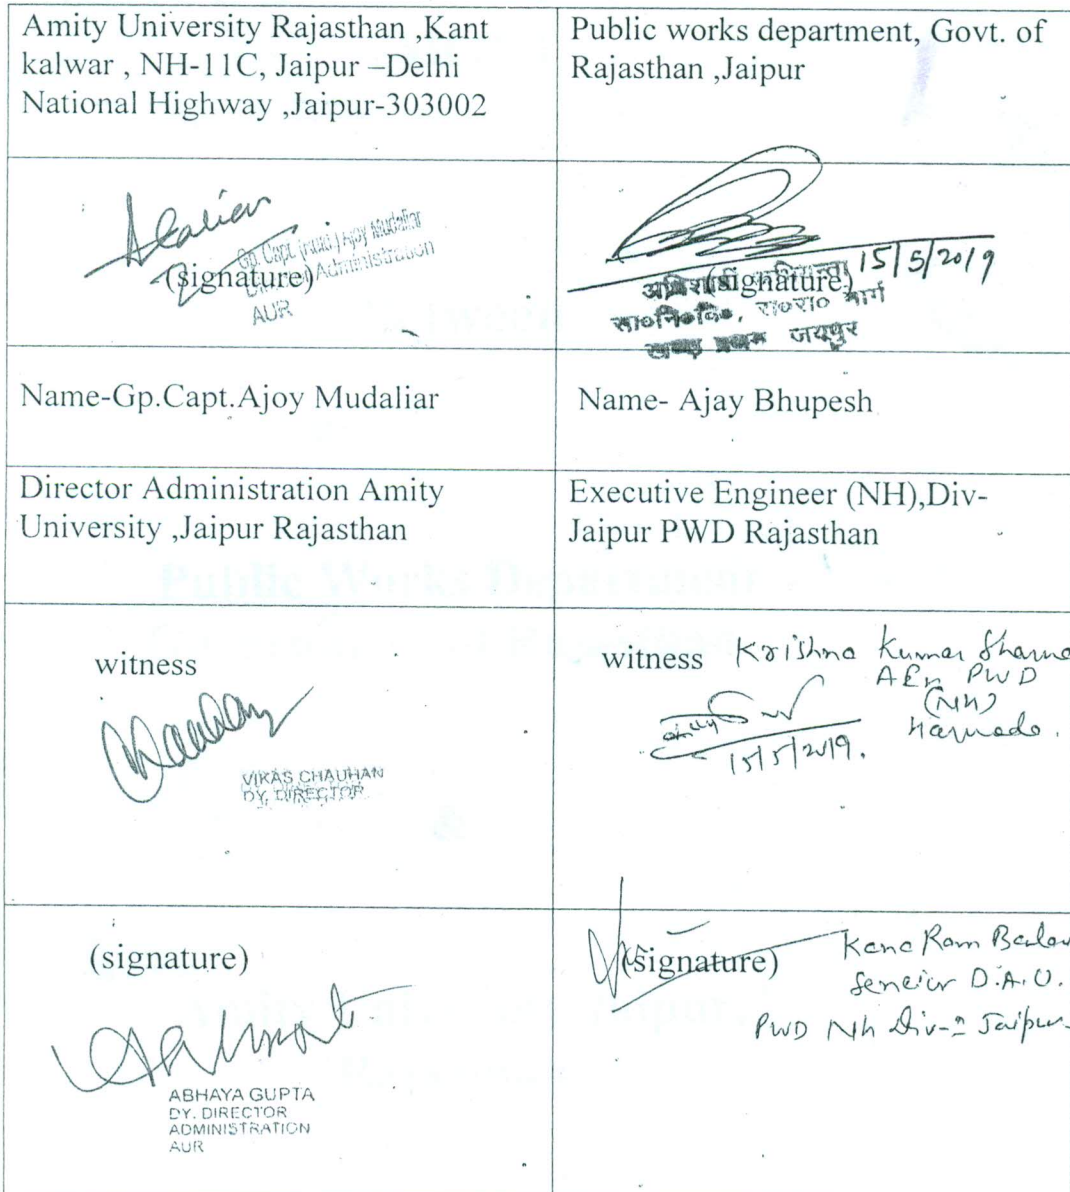 Amity University Rajasthan ,Kant
kalwar , NH-11C, Jaipur –Delhi
National Highway ,Jaipur-303002
Public works department, Govt. of
Rajasthan ,Jaipur
Gp. Capt. (Retd.) Ajoy Mudaliar
Administration
AUR
(signature)
15/5/2019
(signature)
सा०नि०वि०, रा०रा० मार्ग
जयपुर
Name-Gp.Capt.Ajoy Mudaliar
Name- Ajay Bhupesh
Director Administration Amity
University ,Jaipur Rajasthan
Executive Engineer (NH),Div-
Jaipur PWD Rajasthan
witness
VIKAS CHAUHAN
DY. DIRECTOR
witness Krishna Kumar Sharma
AEn PWD
(NH)
15/5/2019.
(signature)
ABHAYA GUPTA
DY. DIRECTOR
ADMINISTRATION
AUR
(signature)
Kana Ram
D.A.O.
PWD Nh Div-2 Jaipur
Public Works Department
&